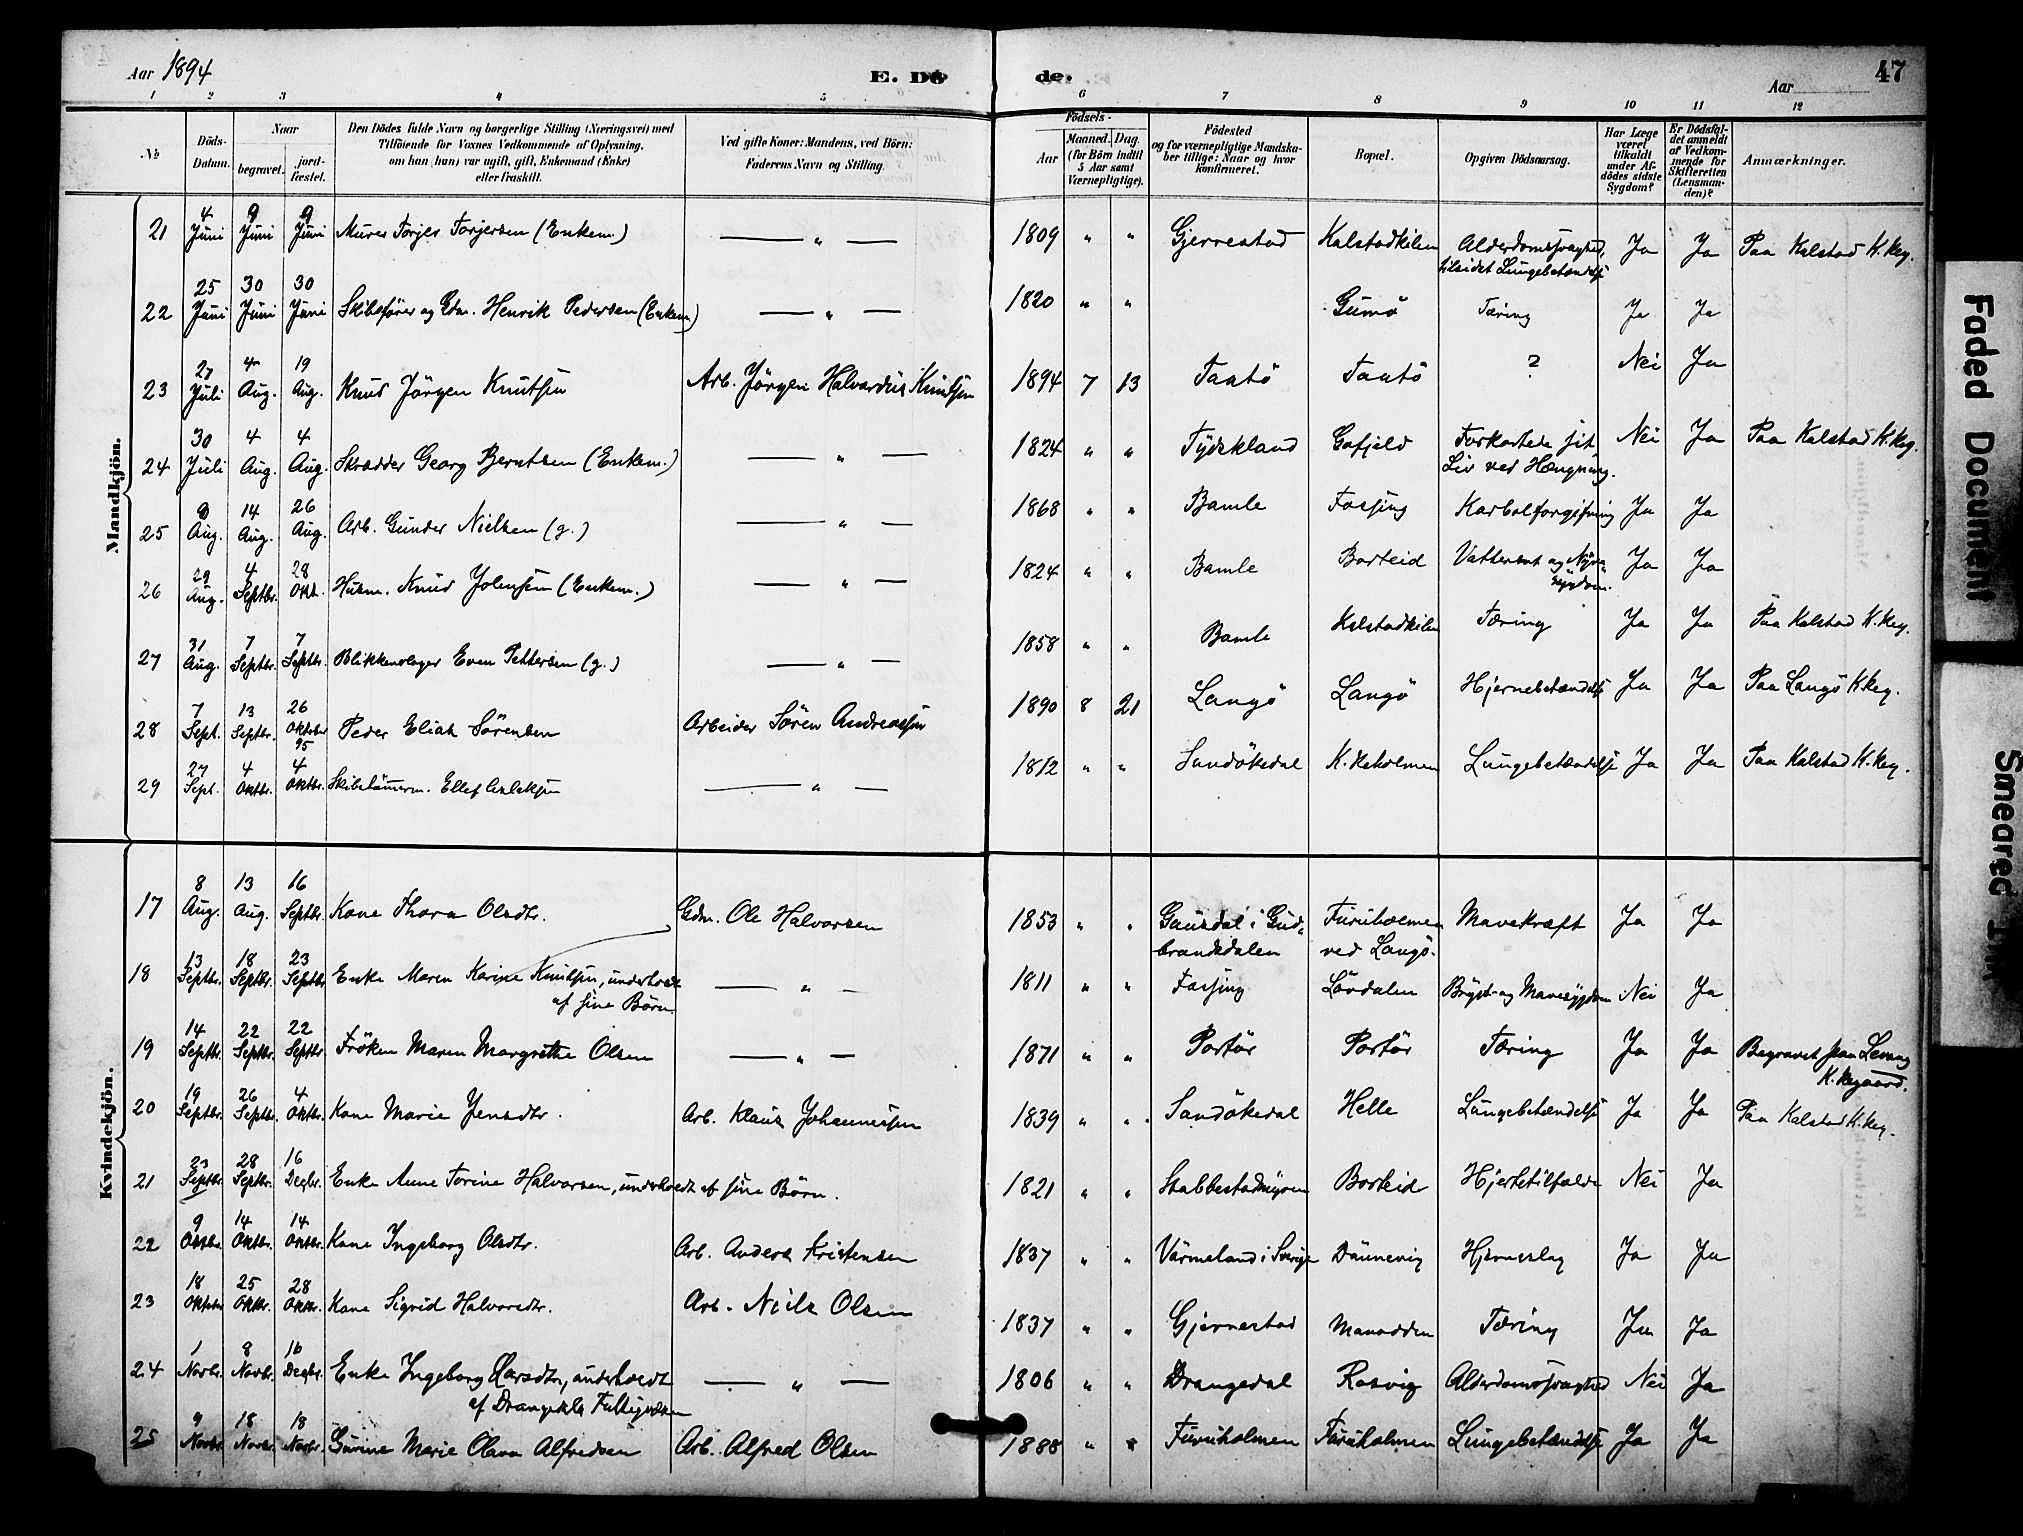 Aar 1894
E. Dö
de.
Aar
47
1 2 3 4 5 6 7 8 9 10 11 12
No
Döds-Datum.
Naar
begravet.
jord-fæstet.
Den Dödes fulde Navn og borgerlige Stilling (Næringsvei) med
Tilföiende for Voxnes Vedkommende af Oplysning,
om han (hun) var ugift, gift, Enkemand (Enke)
eller fraskilt.
Ved gifte Koner: Mandens, ved Börn:
Faderens Navn og Stilling.
Födsels-
Aar
Maaned. Dag.
(for Börn indtil
5 Aar samt
Værnepligtige).
Födested
og for værnepligtige Mandska-
ber tillige: Naar og hvor
konfirmeret.
Bopæl.
Opgiven Dödsaarsag.
Har Læge
været
tilkaldt
under Af-
dödes sidste
Sygdom?
Er Dödsfal-
det anmeldt
af Vedkom-
mende for
Skifteretten
(Lensman-
den)?
Anmærkninger.
Mandkjön.
21 4 Juni 9 Juni 9 Juni Murer Torjer Torjersen (Enkem.) — " — 1809 " " Gjerrestad Kalstadkilen Alderdomssvaghed, tilsidst Lungebetændelse Ja Ja Paa Kalstad K.keg.
22 25 Juni 30 Juni 30 Juni Skibsförer og Gdm. Henrik Pedersen (Enkem.) — " — 1820 " " Gumö Tæring Ja Ja
23 27 Juli 4 Aug. 19 Aug. Knud Jörgen Knutsen Arb. Jörgen Halvardus Knutsen 1894 7 13 Taatö Taatö ? Nei Ja
24 30 Juli 4 Aug. 4 Aug. Skrædder Georg Berntsen (Enkem.) — " — 1824 " " Tydskland Gofjeld Forkortede sit Liv ved Hængning. Nei Ja Paa Kalstad K.keg.
25 8 Aug. 14 Aug. 26 Aug. Arb. Gunder Nielsen (g.) — " — 1868 " " Bamle Fossing Karbolforgiftning Ja Ja
26 29 Aug. 4 Septbr. 28 Okt. Husm. Knud Johnsen (Enkem.) — " — 1824 " " Bamle Borteid Vattersot og Nyre sygdom. Ja Ja
27 31 Aug. 7 Septbr. 7 Septbr. Blikkenslager Even Pettersen (g.) — " — 1858 " " Bamle Kalstadkilen Tæring Ja Ja Paa Kalstad K.keg.
28 7 Sept. 13 Septbr. 26 Oktober 95 Peder Elias Sörensen Arbeider Sören Andreassen 1890 8 21 Langö Langö Hjernebetændelse Ja Ja Paa Langö K.keg.
29 27 Sept. 4 Oktbr. 4 Oktbr. Skibstömrm. Ellef — " — 1812 " " Sandökedal Lungebetændelse Ja Ja Paa Kalstad K.keg.
Kvindekjön.
17 8 Aug. 13 Aug. 16 Septbr. Kone Thora Olsdtr. Gdm. Ole Halvorsen 1853 " " Gausdal i Gud-brandsdalen Furuholmen ved Langö. Mavekræft Ja Ja
18 13 Septbr. 18 Septbr. 23 Septbr. Enke Maren Karine Knutsen, underholdt af sine Börn. — " — 1811 " " Fossing Lövdalen Bryst- og Mavesygdom Nei Ja
19 14 Septbr. 22 Septbr. 22 Septbr. Fröken Maren Margrethe Olsen — " — 1871 " " Portör Portör Tæring Ja Ja Begravet paa Levang K.kegaard.
20 19 Septbr. 26 Septbr. 4 Oktbr. Kone Marie Jensdtr. Arb. Klaus Johannessen 1839 " " Sandökedal Helle Lungebetændelse Ja Ja Paa Kalstad K.keg.
21 23 Septbr. 28 Septbr. 16 Decbr. Enke Anne Torine Halvorsen, underholdt af sine Börn. 1821 " " Stabbestadmyren Borteid Hjertetilfælde Nei Ja
22 9 Oktbr. 14 Oktbr. 14 Oktbr. Kone Ingeborg Olsdtr. Arb. Anders Kristensen 1837 " " Värmeland i Sverige Dünnevig Hjerneslag Ja Ja
23 18 Oktbr. 25 Oktbr. 28 Oktbr. Kone Sigrid Halvorsdtr. Arb. Niels Olsen 1837 " " Gjernestad Manodden Tæring Ja Ja
24 1 Novbr. 8 Novbr. 16 Decbr. Enke Ingeborg Larsdtr., underholdt af Drangedals Fattigvæsen — " — 1806 " " Drangedal Rosvig Alderdomssvaghed Nei Ja
25 9 Novbr. 18 Novbr. 18 Novbr. Gurine Marie Olava Alfredsen Arb. Alfred Olsen 1888 " " Furuholmen Furuholmen Lungebetændelse Ja Ja
Faded Document
Smeared Ink